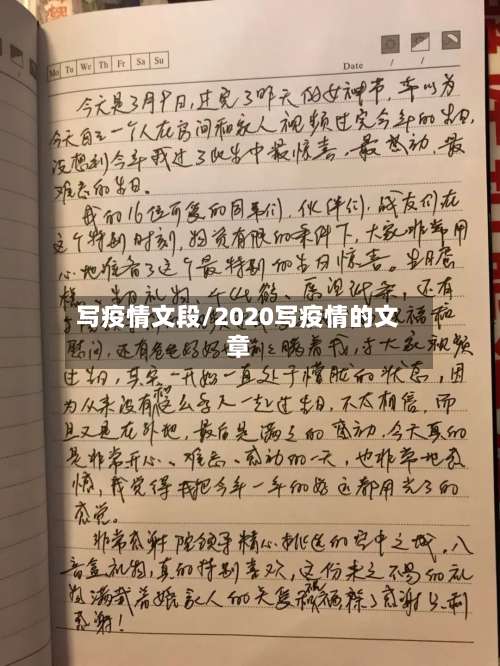 Mo Tu We Th Fr Sa Su
Date / /
今天是3月9日,过完了昨天的女神节,本以为
今天自己一个人在房间和家人视频过完今年的生日,
没想到今年我过了此生中最惊喜、最感动、最
难忘的生日。
我的16位可爱的同事们,伙伴们,战友们在
这个特别时刻,物资有限的条件下,大家非常用
心地准备了这个最特别的生日惊喜。生日蛋
生日礼物、千纸鹤、
还有
写疫情文段/2020写疫情的文
章
慰问,还有爸爸妈妈
瞒着我,与大家视频
过生日,其实一开始一直处于懵脏的状态,因
为从来没有和这么多人一起过生日,不太相信,而
且又是在外地,最后是满满的感动,今天真的
是非常开心、难忘、感动的一天,也非常地感
慨,我觉得我把今年一年的好运都用光了的
感觉。
非常感谢院领导精心挑选的空中之城,八
音盒礼物,真的特别喜欢,这份来之不易的礼
物满载着娘家人的关爱祝福除了感谢只剩
感谢!